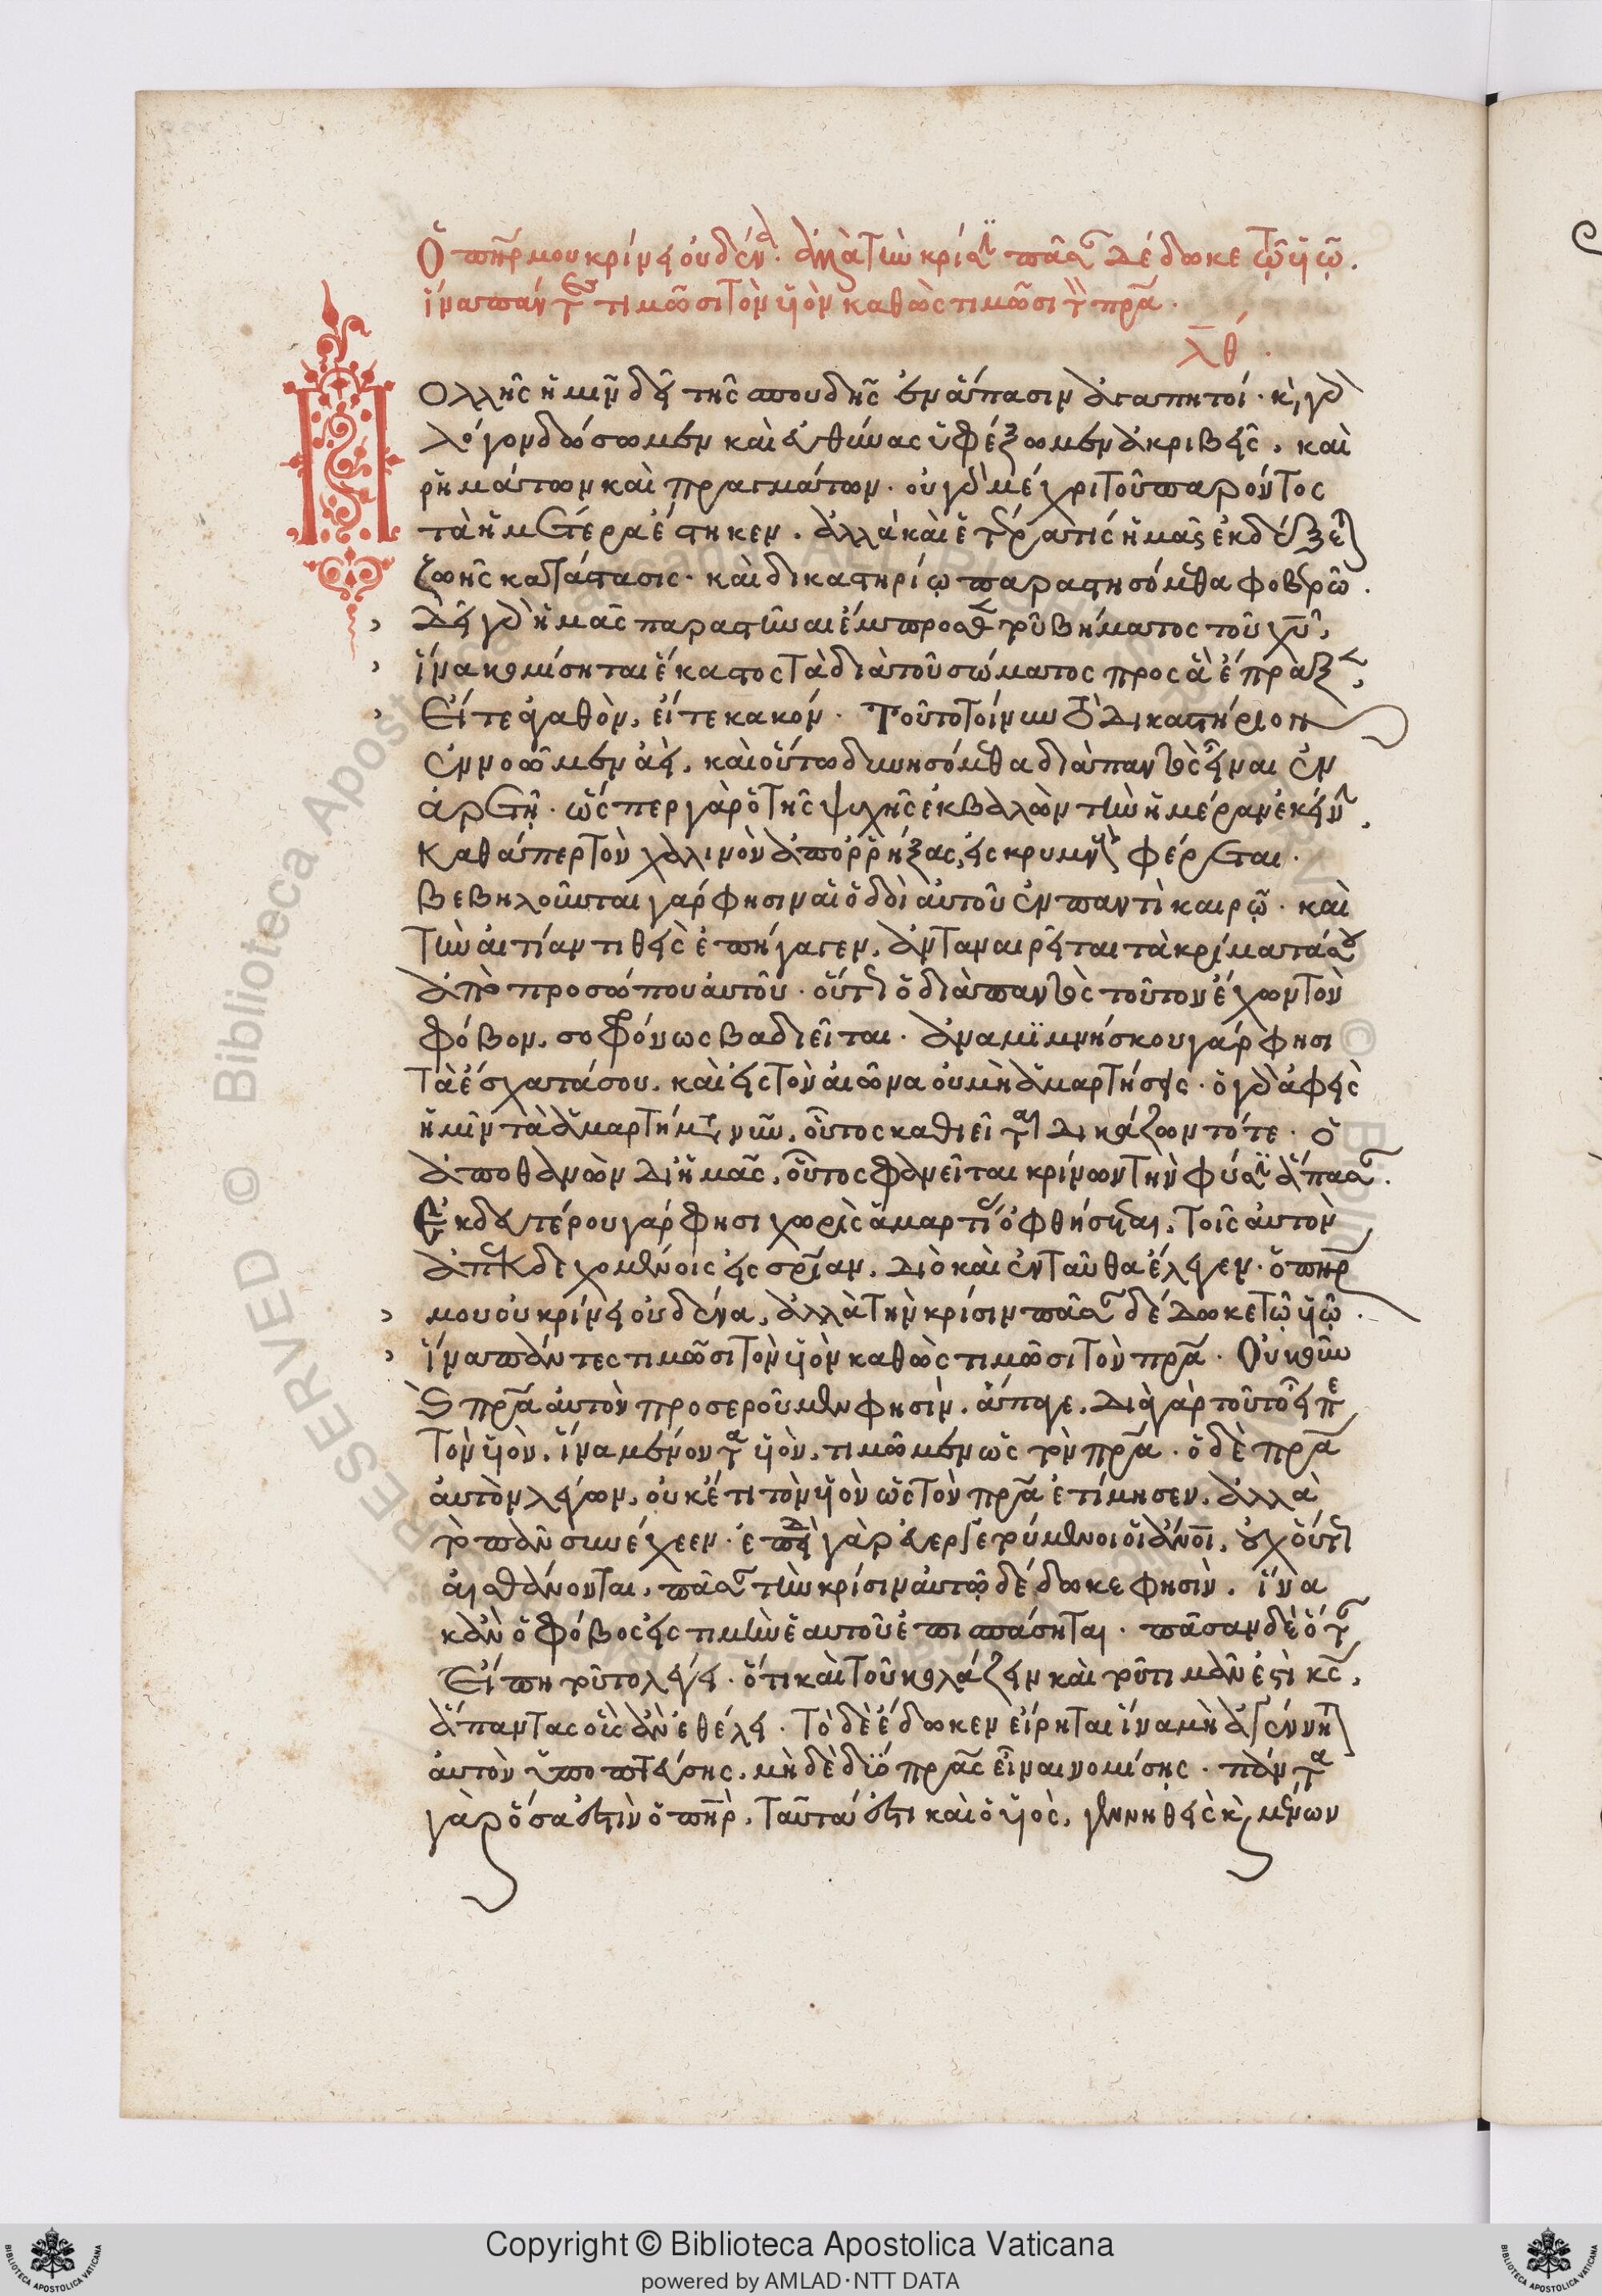 Ὁ πηρ μου κρίνει οὐδένα. ἀλλὰ τὴν κρίσιν πᾶσαν δέδωκε τῷ υἱῷ.
ἵνα πάντες τιμῶσι τὸν υἱὸν καθὼς τιμῶσι τὸν πρα.
λθ.
Πολλῆς ἡμῖν δεῖ τῆς σπουδῆς ἐν ἅπασιν ἀγαπητοί. καὶ γὰρ
λόγον δώσωμεν καὶ εὐθύνας ὑφέξωμεν ἀκριβεῖς, καὶ
ῥημάτων καὶ πραγμάτων. οὐ γὰρ μέχρι τοῦ παρόντος
τὰ ἡμέτερα ἕστηκεν. ἀλλὰ καὶ ἑτέρα τίς ἡμᾶς ἐκδέξεται
ζωῆς κατάστασις. καὶ δικαστηρίῳ παραστησόμεθα φοβερῷ.
Δεῖ γὰρ ἡμᾶς παραστῆναι ἔμπροσθεν τοῦ βήματος τοῦ χυ,
ἵνα κομίσηται ἕκαστος τὰ διὰ τοῦ σώματος προς ἃ ἔπραξεν,
Εἴτε ἀγαθὸν, εἴτε κακόν. Τοῦτο τοίνυν τὸ δικαστήριον
ἐννοῶμεν ἀεὶ, καὶ οὕτω δυνησόμεθα διὰ παντὸς εἶναι ἐν
ἀρετῇ. ὥσπερ γὰρ ὁ τῆς ψυχῆς ἐκβαλὼν τὴν ἡμέραν ἐκείνην,
Καθάπερ τὸν χαλινὸν ἀπορρήξας, εἰς κρημνοὺς φέρεται.
Βεβηλοῦνται γάρ φησιν αἱ ὁδοὶ αὐτοῦ ἐν παντὶ καιρῷ. καὶ
τὴν αἰτίαν τιθεὶς ἐπήγαγεν, ἀνταναιρεῖται τὰ κρίματά σου
ἀπὸ προσώπου αὐτοῦ. οὕτως ὁ διὰ παντὸς τοῦτον ἔχων τὸν
φόβον, σοφόνως βαδιεῖται. ἀναμϊμνήσκου γάρ φησι
τὰ ἔσχατά σου, καὶ εἰς τὸν αἰῶνα οὐ μὴ ἁμαρτήσεις. ὁ γὰρ ἀφεὶς
ἡμῖν τὰ ἁμαρτήματα νῦν, οὗτος καθιεῖται δικάζων τότε. Ὁ
ἀποθανὼν δι ἡμᾶς, οὗτος φανεῖται κρίνων τὴν φύσιν ἅπασαν.
Ἐκ δευτέρου γάρ φησι χωρὶς ἁμαρτίας ὀφθήσεται, τοῖς αὐτὸν
ἀπεκδεχομένοις εἰς σρίαν. Διὸ καὶ ἐνταῦθα ἔλεγεν. ὁ πηρ
μου οὐ κρίνει οὐδένα, ἀλλὰ τὴν κρίσιν πᾶσαν δέδωκε τῷ υἱῷ.
ἵνα πάντες τιμῶσι τὸν υἱὸν καθὼς τιμῶσι τὸν πρα. Οὐκοῦν
πρα αὐτὸν προσεροῦμεν φησὶν. ἄπαγε. Διὰ γὰρ τοῦτο εἶπε
τὸν υἱὸν, ἵνα μένοντα υἱὸν, τιμῶμεν ὡς τὸν πρα. ὁ δὲ πρα
αὐτὸν λέγων, οὐκέτι τὸν υἱὸν ὡς τὸν πρα ἐτίμησεν, ἀλλὰ
τὸ πᾶν συνέχεεν. ἐπειδὴ γὰρ οἱ ἀνοι, οὐχ οὕτως
αἰσθάνονται, πᾶσαν τὴν κρίσιν αὐτῷ δέδωκε φησὶν. ἵνα
κἂν ὁ φόβος εἰς τιμὴν ἑαυτοῦ ἐπισπάσηται. πᾶσαν δὲ ὅταν
Εἴπῃ τοῦτο λέγει. ὅτι καὶ τοῦ κολάζειν καὶ τοῦ τιμᾶν ἐστὶ κς,
ἅπαντας οὓς ἂν ἐθέλει. Τὸ δὲ ἔδωκεν εἴρηται ἵνα μὴ ἀγέννητον
αὐτὸν ὑποπτεύσῃς, μὴ δὲ δύο πρας εἶναι νομίσῃς. πάντα
γὰρ ὅσα ἐστὶν ὁ πηρ, ταῦτα ἐστι καὶ ὁ υἱὸς, γεννηθεὶς καὶ μένων
Copyright © Biblioteca Apostolica Vaticana
powered by AMLAD·NTT DATA